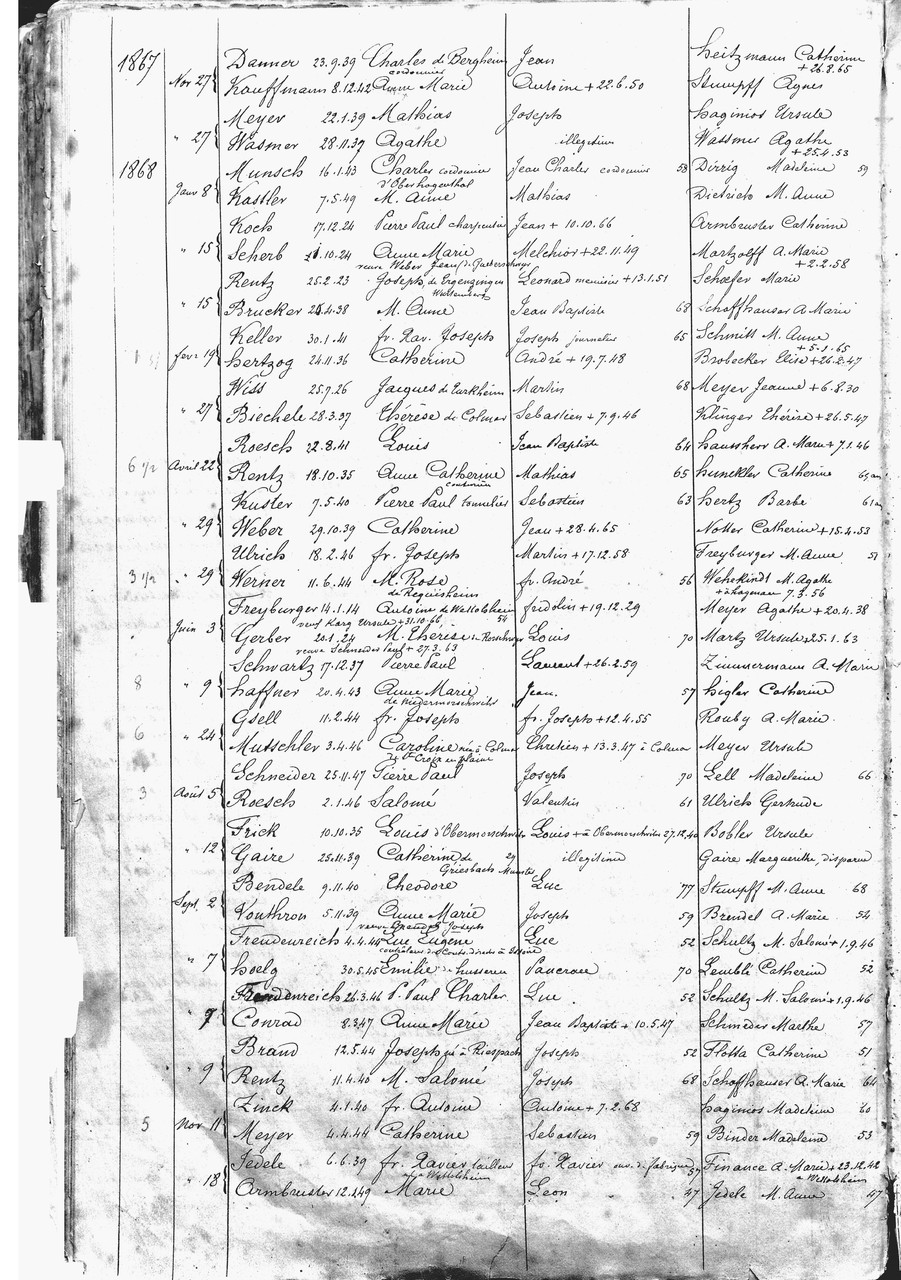 1867 Danner 23.9.39 Charles de Bergheim Jean Heitzmann Catherine
cordonnier +26.8.65
Nov 27 Kauffmann 8.12.42 Anne Marie Antoine +22.6.50 Stumpff Agnes
Meyer 22.1.39 Mathias Joseph Haginior Ursule
" 27 Wasmer 28.11.37 Agathe illegitime Wassmer Agathe
+25.4.53
1868 Munsch 16.1.43 Charles cordonnier Jean Charles cordonnier 58 Dirrig Madeleine 59
d'Oberhagenthal
Janv 8 Kastler 7.5.49 M. Anne Mathias Dietrich M. Anne
Koch 17.12.24 Pierre Paul charpentier Jean + 10.10.66 Armbruster Catherine
" 15 Scherb 10.24 Anne Marie Melchior +22.11.49 Martzolff A. Marie
veuve Weber Jean +2.2.58
Rentz 25.2.23 Joseph de Ergenzingen Leonard menuisier +13.1.51 Schæfer Marie
Wurtemberg
" 15 Brucker 4.38 M. Anne Jean Baptiste 68 Schaffhauser A. Marie
Keller 30.1.41 fr. Xav. Joseph Joseph journalier 65 Schmitt M. Anne
+5.1.65
fevr 19 Hertzog 24.11.36 Catherine André +19.7.48 Brobecker Elise +26.2.47
Wiss 25.9.26 Jacques de Turkheim Martin 68 Meyer Jeanne +6.8.30
" 27 Biechele 28.3.37 Thérèse de Colmar Sebastien +7.9.46 Klinger Thérèse +26.5.47
Roesch 22.8.41 Louis Jean Baptiste 64 Haussherr A. Marie +7.1.46
6 1/2 Avril 22 Rentz 18.10.35 Anne Catherine Mathias 65 Hunckler Catherine
couturière
Kuster 7.5.40 Pierre Paul tonnelier Sebastien 63 Hertz Barbe
" 29 Weber 29.10.39 Catherine Jean +28.4.65 Notter Catherine +15.4.53
Ulrich 18.2.46 fr. Joseph Martin +17.12.58 Freyburger M. Anne 51
3 1/2 " 29 Werner 11.6.44 M. Rose fr. André 56 M. Agathe
de Reguisheim + à Hagenau 7.3.56
Freyburger 14.1.14 Antoine de Wettolsheim fridolin +19.12.29 Meyer Agathe +20.4.38
veuf Karg Ursule +31.10.66 54
Juin 3 Gerber 20.1.24 M. Thérèse Louis 70 Martz Ursule +25.1.63
veuve Schneider Paul +27.3.63
Schwartz 17.12.37 Pierre Paul Laurent +26.2.59 Zimmermann A. Marie
8 " 9 Haffner 20.4.43 Anne Marie Jean. 57 Higler Catherine
de Niedermorschwihr
Gsell 11.2.44 fr. Joseph fr. Joseph +12.4.55 Rouby A. Marie.
6 " 24 Mutschler 3.4.46 Caroline née à Colmar Chretien +13.3.47 à Colmar Meyer Ursule
Ste Croix en plaine
Schneider 25.11.47 Pierre Paul Joseph 70 Lell Madeleine 66
3 Août 5 Roesch 2.1.46 Salomé Valentin 61 Ulrich Gertrude
Frick 10.10.35 Louis d'Obermorschwihr Louis + à Obermorschwihr 27.12.40 Bobler Ursule
" 12 Gaire 25.11.39 Catherine de 29 illegitime Gaire Marguerithe, disparue
Griesbach Munster
Bendele 9.11.40 Theodore Luc 77 Stumpff M. Anne 68
Sept. 2 Vonthron 5.11.39 Anne Marie Joseph 59 Brendel A. Marie 54
veuve Joseph
Freudenreich 4.4.44 Luc Eugène Luc 52 Schultz M. Salomé +1.9.46
" 7 Hoelg 30.5.45 Emilie de Husseren Pancrace 70 Lemblé Catherine 52
Freudenreich 26.3.46 P. Paul Charles Luc. 52 Schultz M. Salomé +1.9.46
" 7 Conrad 8.3.47 Anne Marie Jean Baptiste +10.5.47 Schneder Marthe 57
Brand 12.5.44 Joseph né à Riespach Joseph 52 Flotta Catherine 51
" 9 Rentz 11.4.40 M. Salomé Joseph 68 Schaffhauser A. Marie 64
Zinck 4.1.40 fr. Antoine Antoine +7.2.68 Haginior Madeleine 60
5 Nov 11 Meyer 4.4.44 Catherine Sebastien 59 Binder Madeleine 53
Jedele 6.6.39 fr. Xavier tailleur fr. Xavier ouv. de fabrique 57 Finance A. Marie +23.12.42
Wettolsheim à Wettolsheim
" 18 Armbruster 12.1.49 Marie Leon 47 Jedele M. Anne 47